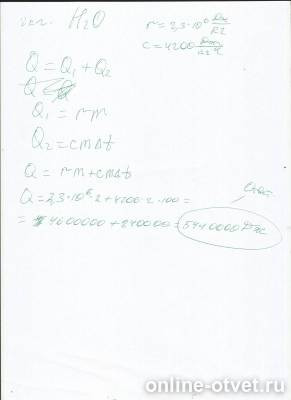 H₂O
r = 2,3·10⁶ Дж/кг
c = 4200 Дж/кг°C
Q = Q₁ + Q₂
Q₁ = rm
Q₂ = cmΔt
Q = rm + cmΔt
Q = 2,3·10⁶·2 + 4200·2·100 =
= 4600000 + 840000 = 5440000 Дж
online-otvet.ru